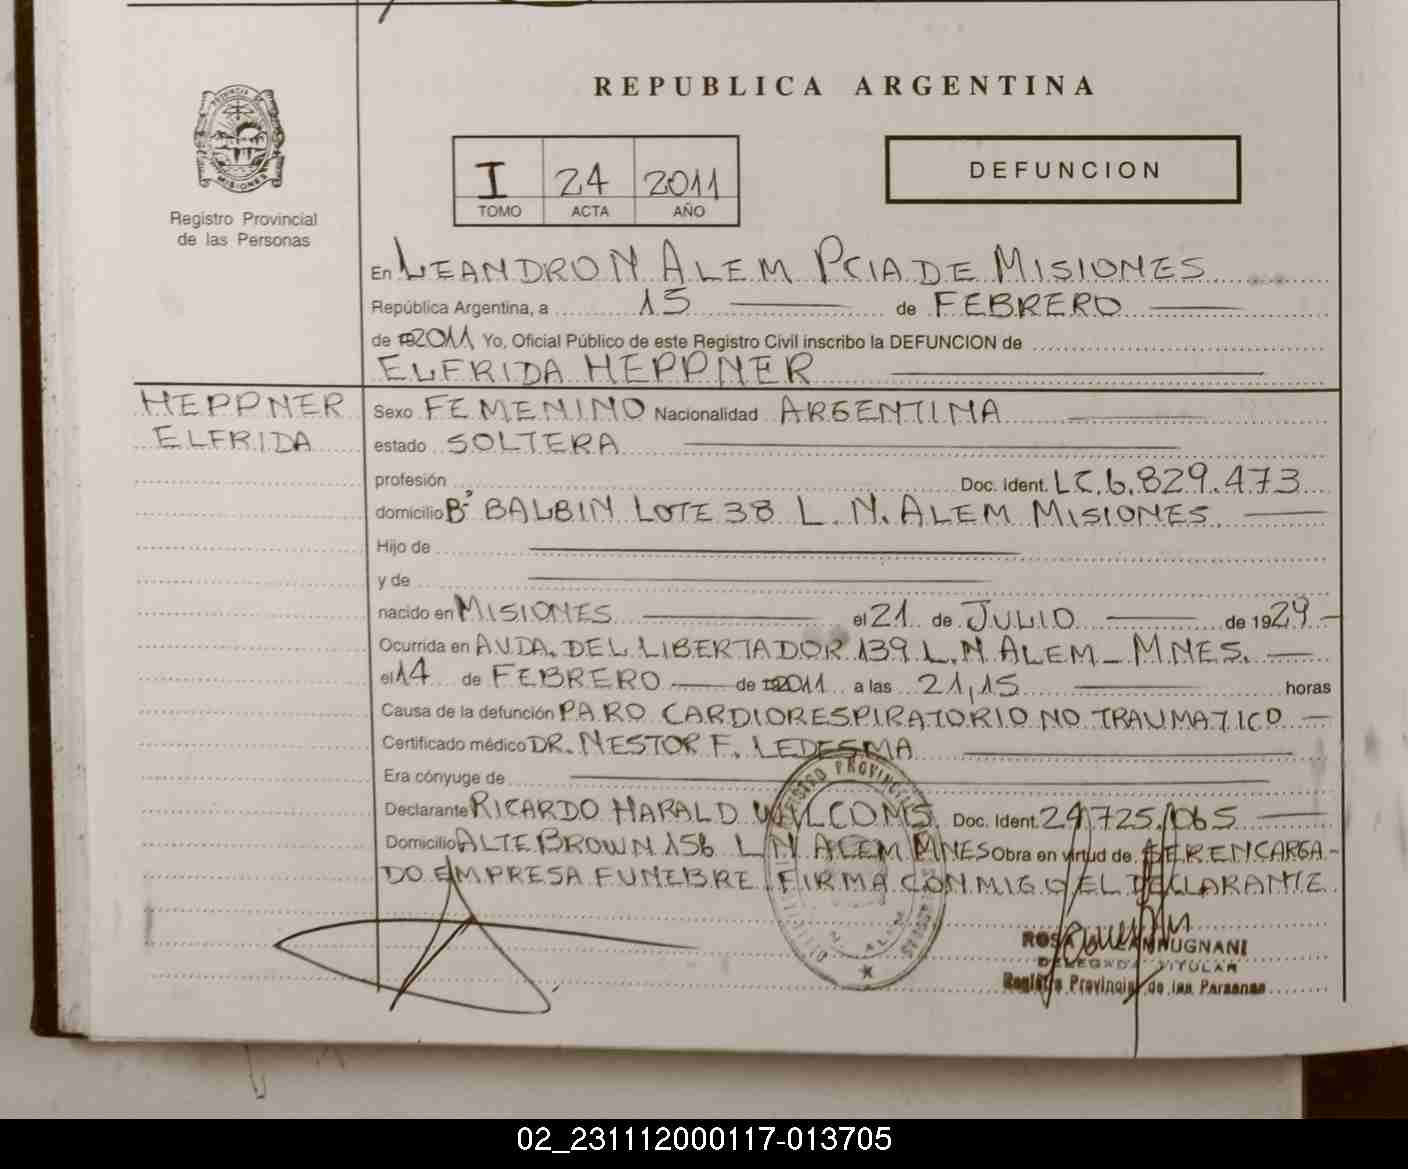 REPUBLICA ARGENTINA
PROVINCIA DE
MISIONES
Registro Provincial
de las Personas
I 24 2011
TOMO ACTA AÑO
DEFUNCION
En LEANDRO N ALEM PCIA DE MISIONES
República Argentina, a 15 de FEBRERO
de 2011 Yo, Oficial Público de este Registro Civil inscribo la DEFUNCION de
ELFRIDA HEPPNER
HEPPNER
ELFRIDA
Sexo FEMENINO Nacionalidad ARGENTINA
estado SOLTERA
profesión Doc. Ident. LC.6.829.473
domicilio B° BALBIN LOTE 38 L. N. ALEM MISIONES
Hijo de
y de
nacido en MISIONES el 21 de JULIO de 1929
Ocurrida en AVDA. DEL LIBERTADOR 139 L.N ALEM - MNES.
el 14 de FEBRERO de 2011 a las 21,15 horas
Causa de la defunción PARO CARDIORESPIRATORIO NO TRAUMATICO
Certificado médico DR. NESTOR F. LEDESMA
Era cónyuge de
Declarante RICARDO HARALD Doc. Ident. 24.725.065
Domicilio ALTE BROWN 156 L N ALEM MNES Obra en virtud de SER ENCARGA-
DO EMPRESA FUNEBRE. FIRMA CONMIGO EL DECLARANTE
REGISTRO PROVINCIAL
N. ALEM
ROSA
DELEGADA TITULAR
Registro Provincial de las Personas
02_231112000117-013705